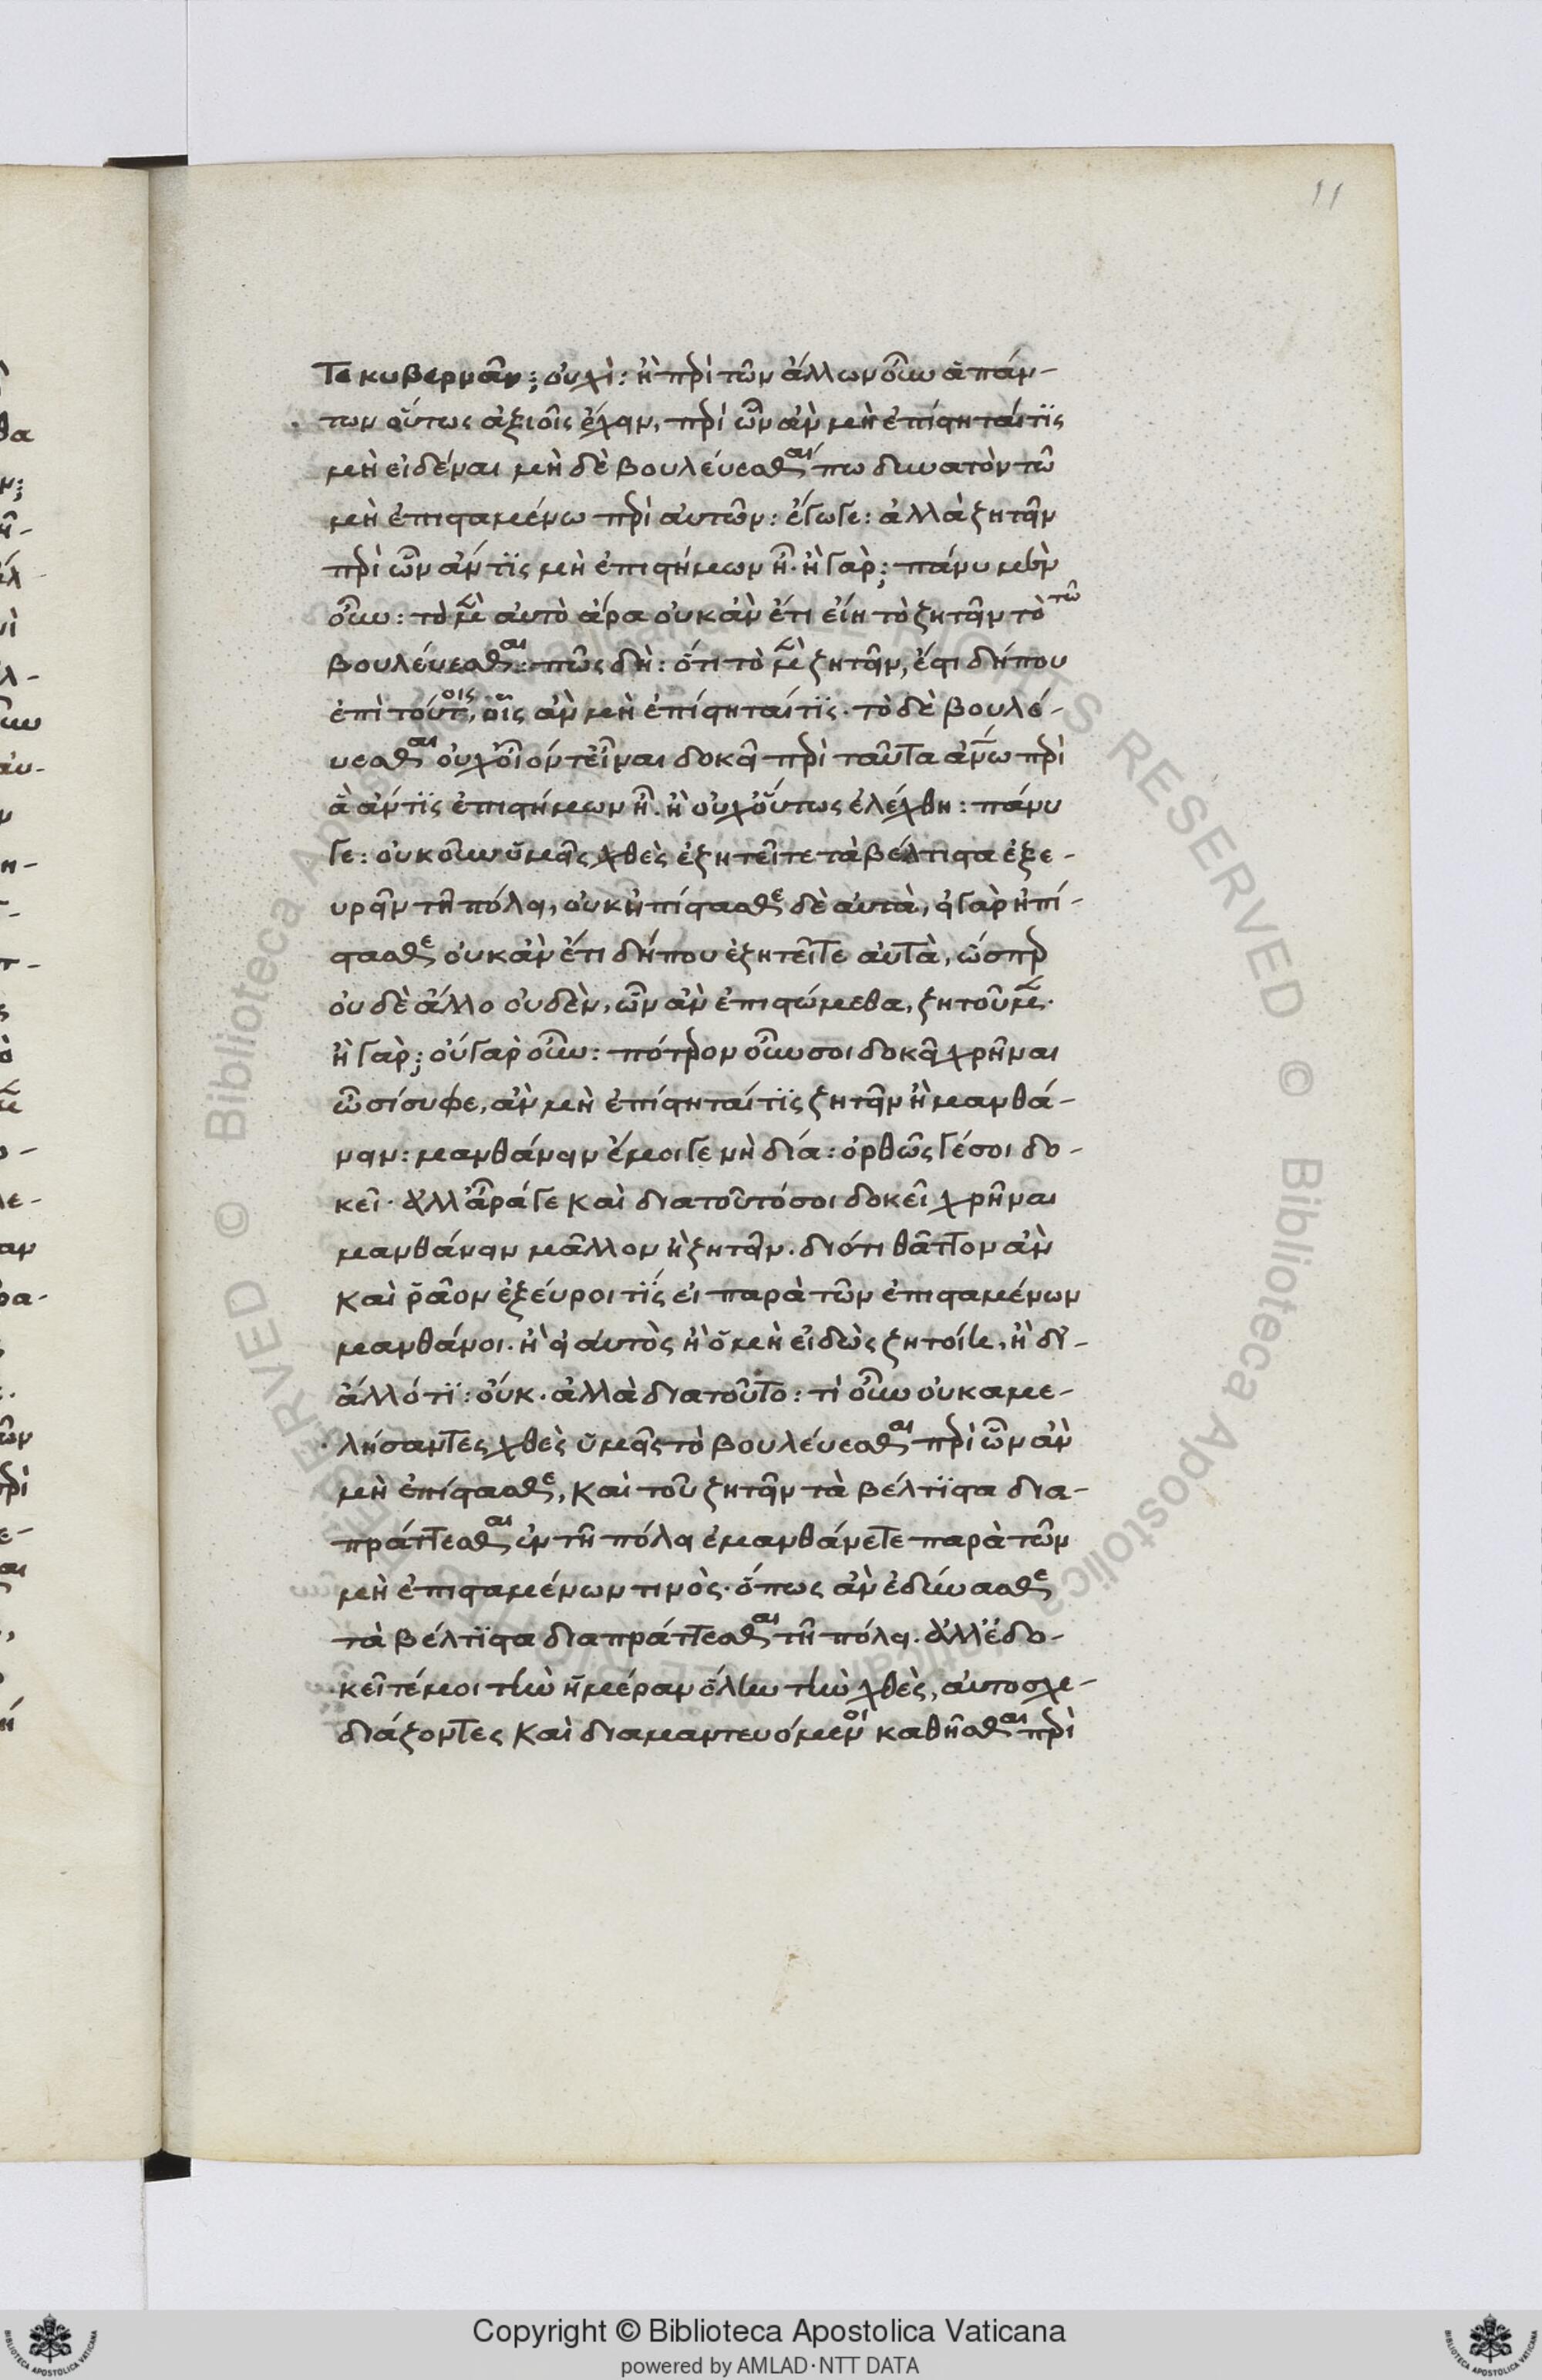 11
τε κυβερνᾶν; οὐχὶ: ἢ περὶ τῶν ἄλλων οὖν ἁπάν-
των οὕτως ἀξιοῖς ἔχειν, περὶ ὧν ἂν μὴ ἐπίστηταί τις
μὴ εἰδέναι μὴ δὲ βουλεύεσθαι πω δυνατὸν τῶ
μὴ ἐπισταμένω περὶ αὐτῶν: ἔγωγε: ἀλλὰ ζητεῖν
περὶ ὧν ἄν τις μὴ ἐπιστήμων ῆ. ἢ γάρ; πάνυ μὲν
οὖν: τὸ μὲν αὐτὸ ἄρα οὐκ ἂν ἔτι εἴη τὸ ζητεῖν τὸ τῶ
βουλεύεσθαι: πῶς δή: ὅτι τὸ μὲν ζητεῖν, ἔστι δήπου
ἐπὶ τούτοις, οἷς ἂν μὴ ἐπίστηταί τις. τὸ δὲ βουλεύ-
υεσθαι οὐχ οἷόν τ εἶναι δοκεῖ περὶ ταῦτα ἀνω περὶ
ἃ ἄν τις ἐπιστήμων ῆ. ἢ οὐχ οὕτως ἐλέχθη: πάνυ
γε: οὐκοῦν ὑμεῖς χθὲς ἐζητεῖτε τὰ βέλτιστα ἐξε-
υρεῖν τῆ πόλει, οὐκ ἠπίστασθε δὲ αὐτὰ, εἰ γὰρ ἠπί-
στασθε οὐκ ἂν ἔτι δήπου ἐζητεῖτε αὐτὰ, ὥσπερ
οὐδὲ ἄλλο οὐδὲν, ὧν ἂν ἐπιστώμεθα, ζητοῦμεν.
ἢ γάρ; οὐ γὰρ οὖν: πότερον οὖν σοι δοκεῖ χρῆναι
ὦ σίσυφε, ἂν μὴ ἐπίστηταί τις ζητεῖν ἢ μανθά-
νειν: μανθάνειν ἔμοιγε νὴ δία: ὀρθῶς γέ σοι δο-
κεῖ. ἀλλ ἆρά γε καὶ διατοῦτό σοι δοκεῖ χρῆναι
μανθάνειν μᾶλλον ἢ ζητεῖν. διότι θᾶττον ἂν
καὶ ῥᾶον ἐξεύροι τίς εἰ παρὰ τῶν ἐπισταμένων
μανθάνοι. ἢ εἰ αὐτὸς ἢ ὁ μὴ εἰδὼς ζητοίη, ἢ δι-
ἄλλό τι: οὔκ. ἀλλὰ διατοῦτο: τὶ οὖν οὐκ ἀμε-
λήσαντες χθὲς ὑμεῖς τὸ βουλεύεσθαι περὶ ὧν ἂν
μὴ ἐπίστασθε, καὶ τοῦ ζητεῖν τὰ βέλτιστα δια-
πράττεσθαι ἐν τῆ πόλει ἐμανθάνετε παρὰ τῶν
μὴ ἐπισταμένων τινὸς. ὅπως ἂν ἐδύνασθε
τὰ βέλτιστα διαπράττεσθαι τῆ πόλει. ἀλλ ἐδο-
κεῖτέ μοι τὴν ἡμέραν ὅλην τὴν χθὲς, αὐτοσχε-
διάζοντες καὶ διαμαντευόμενοι καθῆσθαι περὶ
Copyright © Biblioteca Apostolica Vaticana
powered by AMLAD·NTT DATA